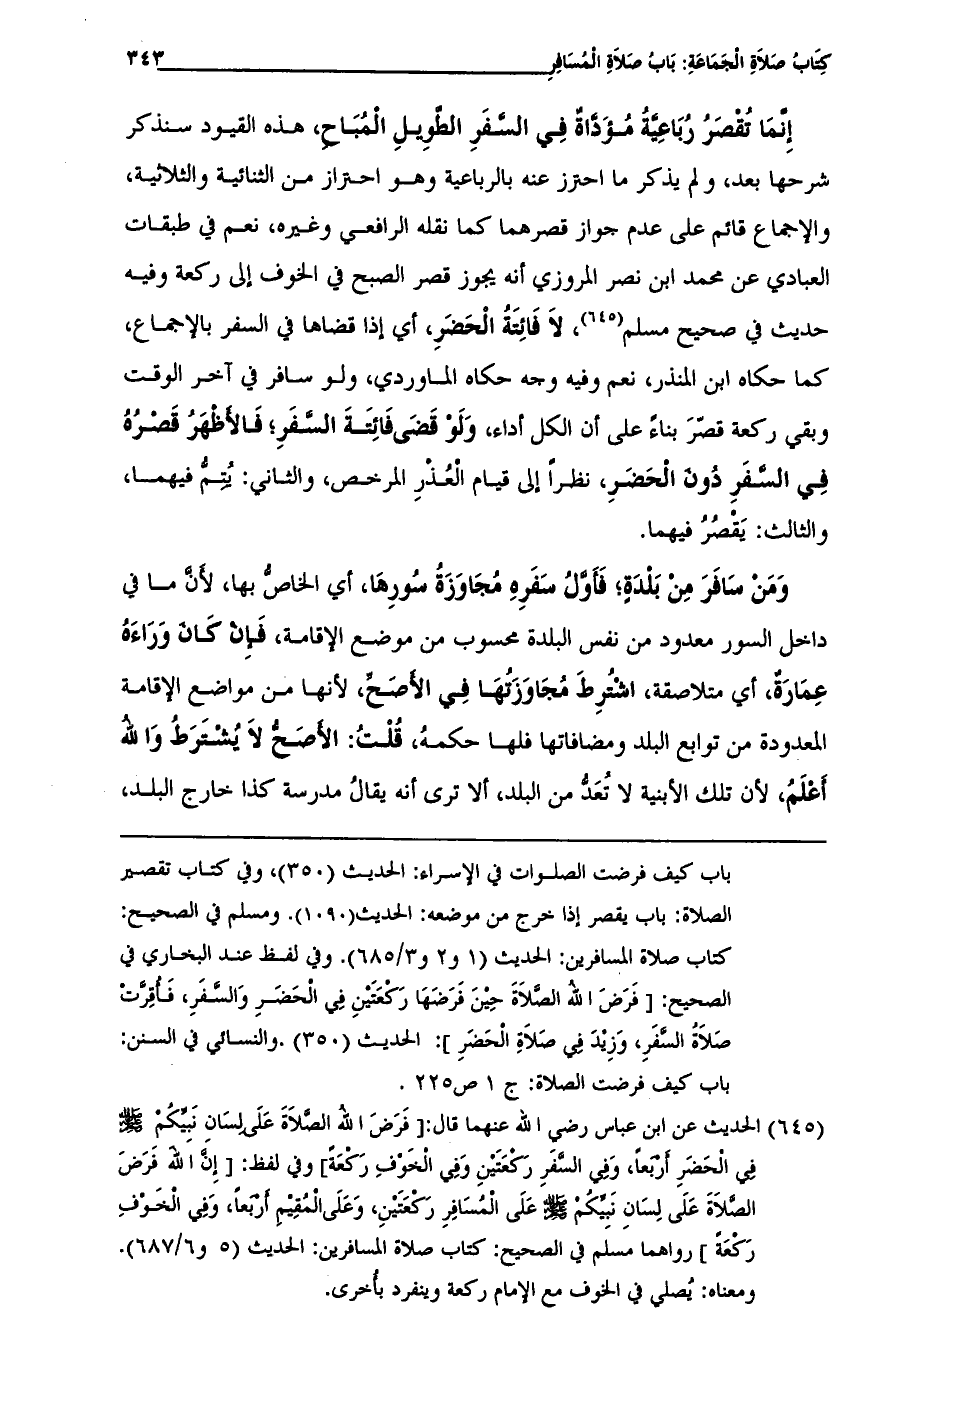 كِتَابُ صَلاَةِ الْجَمَاعَةِ: بَابُ صَلاَةِ الْمُسَافِرِ ٣٤٣
إِنَّمَا تُقْصَرُ رُبَاعِيَّةٌ مُؤَدَّاةٌ فِي السَّفَرِ الطَّوِيلِ الْمُبَاحِ، هذه القيود سنذكر
شرحها بعد، ولم يذكر ما احترز عنه بالرباعية وهو احتراز من الثنائية والثلاثية،
والإجماع قائم على عدم جواز قصرهما كما نقله الرافعي وغيره، نعم في طبقات
العبادي عن محمد ابن نصر المروزي أنه يجوز قصر الصبح في الخوف إلى ركعة وفيه
حديث في صحيح مسلم(٦٤٥)، لاَ فَائِتَةُ الْحَضَرِ، أي إذا قضاها في السفر بالإجماع،
كما حكاه ابن المنذر، نعم وفيه وجه حكاه الماوردي، ولو سافر في آخر الوقت
وبقي ركعة قصّرَ بناءً على أن الكل أداء، وَلَوْ قَضَى فَائِتَةَ السَّفَرِ؛ فَالأَظْهَرُ قَصْرُهُ
فِي السَّفَرِ دُونَ الْحَضَرِ، نظراً إلى قيام الْعُذْرِ المرخص، والثاني: يُتِمُّ فيهما،
والثالث: يَقْصُرُ فيهما.
وَمَنْ سَافَرَ مِنْ بَلْدَةٍ؛ فَأَوَّلُ سَفَرِهِ مُجَاوَزَةُ سُورِهَا، أي الخاصُّ بها، لأَنَّ ما في
داخل السور معدود من نفس البلدة محسوب من موضع الإقامة، فَإِنْ كَانَ وَرَاءَهُ
عِمَارَةٌ، أي متلاصقة، اشْتُرِطَ مُجَاوَزَتُهَا فِي الأَصَحِّ، لأنها من مواضع الإقامة
المعدودة من توابع البلد ومضافاتها فلها حكمهُ، قُلْتُ: الأَصَحُّ لاَ يُشْتَرَطُ وَاللهُ
أَعْلَمُ، لأن تلك الأبنية لا تُعَدُّ من البلد، ألا ترى أنه يقالُ مدرسة كذا خارج البلد،
باب كيف فرضت الصلوات في الإسراء: الحديث (٣٥٠)، وفي كتاب تقصير
الصلاة: باب يقصر إذا خرج من موضعه: الحديث(١٠٩٠). ومسلم في الصحيح:
كتاب صلاة المسافرين: الحديث (١ و٢ و٦٨٥/٣). وفي لفظ عند البخاري في
الصحيح: [ فَرَضَ اللهُ الصَّلاَةَ حِيْنَ فَرَضَهَا رَكْعَتَيْنِ فِي الْحَضَرِ وَالسَّفَرِ، فَأُقِرَّتْ
صَلاَةُ السَّفَرِ، وَزِيْدَ فِي صَلاَةِ الْحَضَرِ ]: الحديث (٣٥٠) .والنسائي في السنن:
باب كيف فرضت الصلاة: ج ١ ص٢٢٥ .
(٦٤٥) الحديث عن ابن عباس رضي الله عنهما قال:[ فَرَضَ اللهُ الصَّلاَةَ عَلَى لِسَانِ نَبِيِّكُمْ ﷺ
فِي الْحَضَرِ أَرْبَعاً، وَفِي السَّفَرِ رَكْعَتَيْنِ وَفِي الْخَوْفِ رَكْعَةً] وفي لفظ: [ إِنَّ اللهَ فَرَضَ
الصَّلاَةَ عَلَى لِسَانِ نَبِيِّكُمْ ﷺ عَلَى الْمُسَافِرِ رَكْعَتَيْنِ، وَعَلَى الْمُقِيْمِ أَرْبَعاً، وَفِي الْخَوْفِ
رَكْعَةً ] رواهما مسلم في الصحيح: كتاب صلاة المسافرين: الحديث (٥ و٦٨٧/٦).
ومعناه: يُصلي في الخوف مع الإمام ركعة وينفرد بأُخرى.